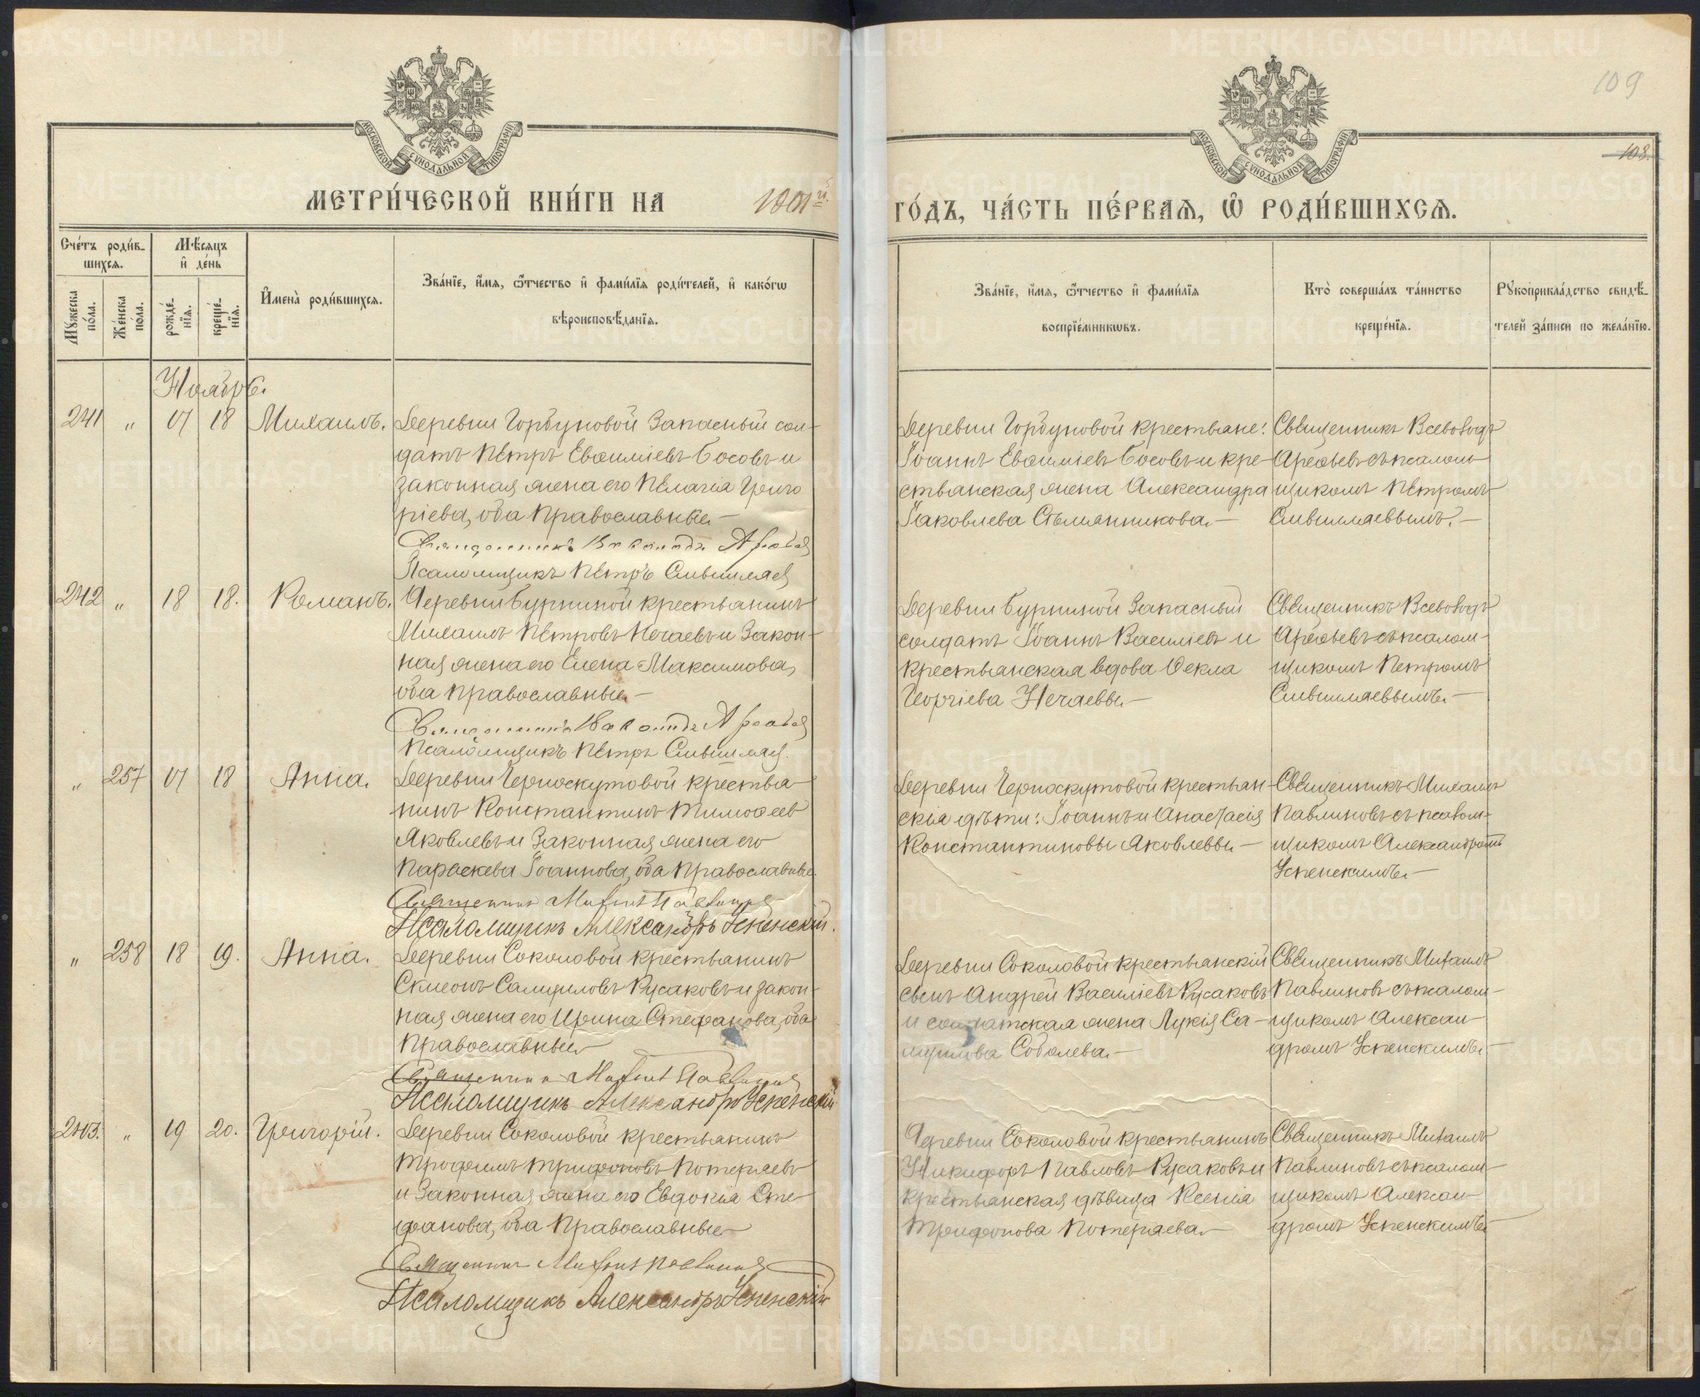 METRIKI.GASO-URAL.RU
109
108.
МОСКОВСКОЙ СѴНОДАЛЬНОЙ ТИПОГРАФІИ
МЕТРИ́ЧЕСКОЙ КНИ́ГИ НА 1901 й. ГО́ДЪ, ЧА́СТЬ ПЕ́РВАЯ, Ѡ РОДИ́ВШИХСЯ.
Сче́тъ роди́в-
шихся.
Мѣсяцъ
и де́нь
Мꙋжеска по́ла.
Же́нска по́ла.
рожде́-
нїя.
креще́-
нїя.
Имена̀ роди́вшихся.
Зва́нїе, и́мя, ѻ́тчество и фами́лїя роди́телей, и како́гѡ
вѣроисповѣ́данїя.
Зва́нїе, и́мя, ѻ́тчество и фами́лїя
воспрїе́мникѡвъ.
Кто̀ соверша́лъ та́инство
креще́нїя.
Рꙋкоприкла́дство свидѣ́-
телей за́писи по жела́нїю.
Ноябрь.
241 " 17 18 Михаилъ.
Деревни Горбуновой Запасный сол-
датъ Петръ Евѳиміевъ Босовъ и
законная жена его Пелагія Григо
ріева, оба Православные.—
Священникъ Всеволодъ Арефьев
Псаломщикъ Петръ Сивилляев
Деревни Горбуновой крестьяне:
Іоаннъ Евѳиміевъ Босовъ и кре-
стьянская жена Александра
Іаковлева Стьмянникова.—
Священникъ Всеволодъ
Арефьевъ съ псалом-
щикомъ Петромъ
242 " 18 18. Романъ.
Деревни Бурниной крестьянинъ
Михаилъ Петровъ Нечаевъ и Закон-
ная жена его Елена Максимова,
оба православные.—
Псаломщикъ Петръ
Деревни Бурниной Запасный
солдатъ Іоаннъ Василіевъ и
крестьянская вдова Ѳекла
Георгіева Нечаевы.—
Священникъ Всеволодъ
Арефьевъ съ псалом-
щикомъ Петромъ
" 257 17 18 Анна.
Деревни Черноскутовой крестья-
нинъ Константинъ Тимоѳеев
Яковлевъ и Законная жена его
Параскева Іоаннова, оба Православные.
Священникъ Михаил Павлинов
Псаломщикъ Александръ Успенскій.
Деревни Черноскутовой крестьян-
скія дѣти: Іоаннъ и Анастасія
Константиновы Яковлевы.—
Священникъ Михаилъ
Павлиновъ съ псалом-
щикомъ Александромъ
Успенскимъ.—
" 258 18 19. Анна.
Деревни Соколовой крестьянинъ
Симеонъ Самуиловъ Русаковъ и закон-
ная жена его Ирина Стефанова, оба
Православные.
Священник Михаил Павлинов
Псаломщикъ Александръ Успенскій
Деревни Соколовой крестьянскій
сынъ Андрей Василіевъ Русаковъ
и солдатская жена Лукія Са-
муилова Соболева.—
Священникъ Михаилъ
Павлиновъ съ псалом-
щикомъ Алексан-
дромъ Успенскимъ.—
243. " 19 20. Григорій.
Деревни Соколовой крестьянинъ
Трофимъ Трифоновъ Потеряевъ
и Законная жена его Евдокія Сте-
фанова, оба Православные.—
Священник Михаил Павлинов
Псаломщикъ Александръ Успенскій
Деревни Соколовой крестьянинъ
Никифоръ Павловъ Русаковъ и
крестьянская дѣвица Ксенія
Трифонова Потеряева.—
Священникъ Михаилъ
Павлиновъ съ псалом-
щикомъ Алексан-
дромъ Успенскимъ.—